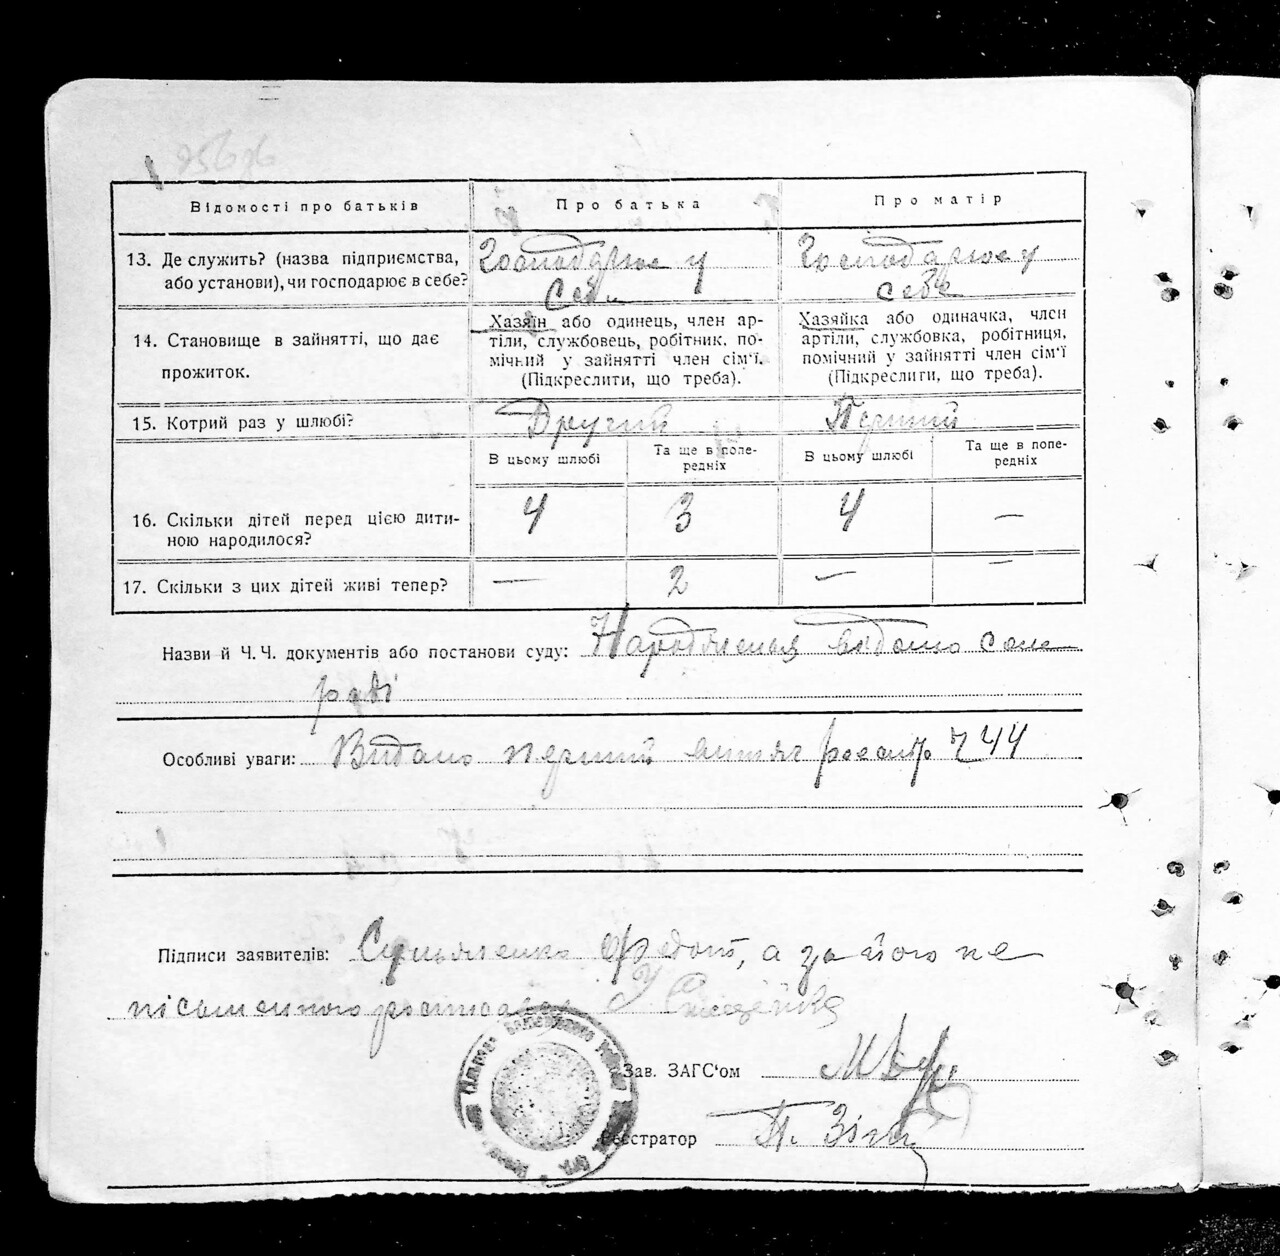 Відомості про батьків
Про батька
Про матір
13. Де служить? (назва підприємства,
або установи), чи господарює в себе?
Господарює у
себе
Господарює у
себе
14. Становище в зайнятті, що дає
прожиток.
Хазяїн або одинець, член ар-
тіли, службовець, робітник, по-
мічний у зайнятті член сім'ї.
(Підкреслити, що треба).
Хазяйка або одиначка, член
артіли, службовка, робітниця,
помічний у зайнятті член сім'ї
(Підкреслити, що треба).
15. Котрий раз у шлюбі?
Другий
Перший
В цьому шлюбі
Та ще в попе-
редніх
В цьому шлюбі
Та ще в попе-
редніх
16. Скільки дітей перед цією дити-
ною народилося?
4
3
4
—
17. Скільки з цих дітей живі тепер?
—
2
—
—
Назви й Ч. Ч. документів або постанови суду: Народження відомо сель
раді
Особливі уваги: Видано перший витяг реєстр Ч 44
Підписи заявителів: Федот, а за його не
письменного
Зав. ЗАГС'ом
Реєстратор П.